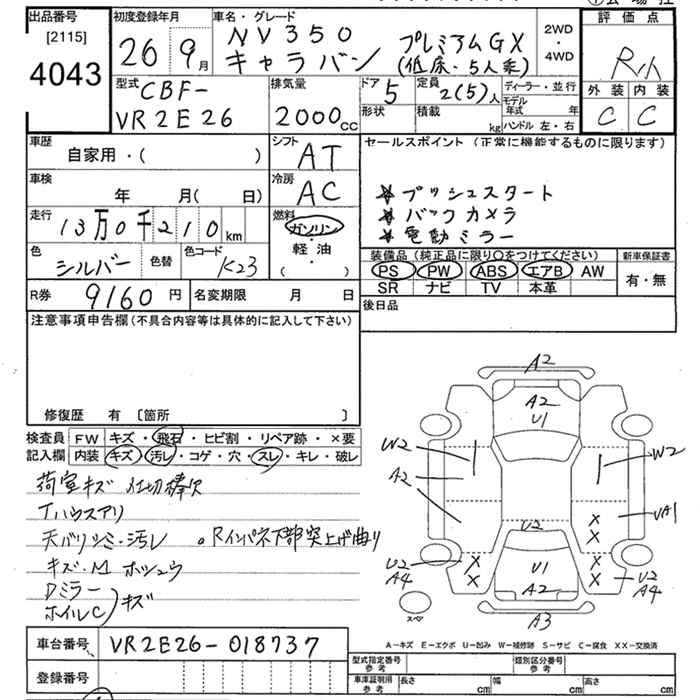 出品番号 初度登録年月 車名・グレード 評価点
[2115] 26 9月 NV350 プレミアムGX 2WD
4043 キャラバン (低床・5人乗) ・4WD
型式 CBF- 排気量 ドア 5 定員 2(5)人 ディーラー・並行 外装 内装
VR2E26 2000cc 形状 積載 kg モデル年式 年 C C
ハンドル 左・右
車歴 シフト セールスポイント (正常に機能するものに限ります)
自家用・( ) AT
車検 冷房 プッシュスタート
年 月( 日) AC バックカメラ
走行 13万0千210km 燃料 ガソリン・ 電動ミラー
色 シルバー 色替 色コード K23 軽油・( ) 装備品 (純正品に限り○をつけてください) 新車保証書
PS PW ABS エアB AW 有・無
R券 9160円 名変期限 月 日 SR ナビ TV 本革
注意事項申告欄(不具合内容等は具体的に記入して下さい) 後日品
修復歴 有 〔箇所 〕
検査員 FW キズ・飛石・ヒビ割・リペア跡・×要
記入欄 内装 キズ・汚レ・コゲ・穴・スレ・キレ・破レ
荷室キズ 仕切棒欠
Tハウスアリ
天バリシミ・汚レ 。Rインパネ下部突上げ曲り
キズ・M ホシュウ
Dミラー
ホイルC)キズ
A2
A2
U1
W2
A2
U2
A4
W2
UA1
U2
A4
U2
U1
A2
A3
スペア
A-キズ E-エクボ U-凹み W-補修跡 S-サビ C-腐食 XX-交換済
車台番号 VR2E26-018737
型式指定番号 参考 類別区分番号 参考
登録番号 車庫証明用 参考 長さ cm 幅 cm 高さ cm